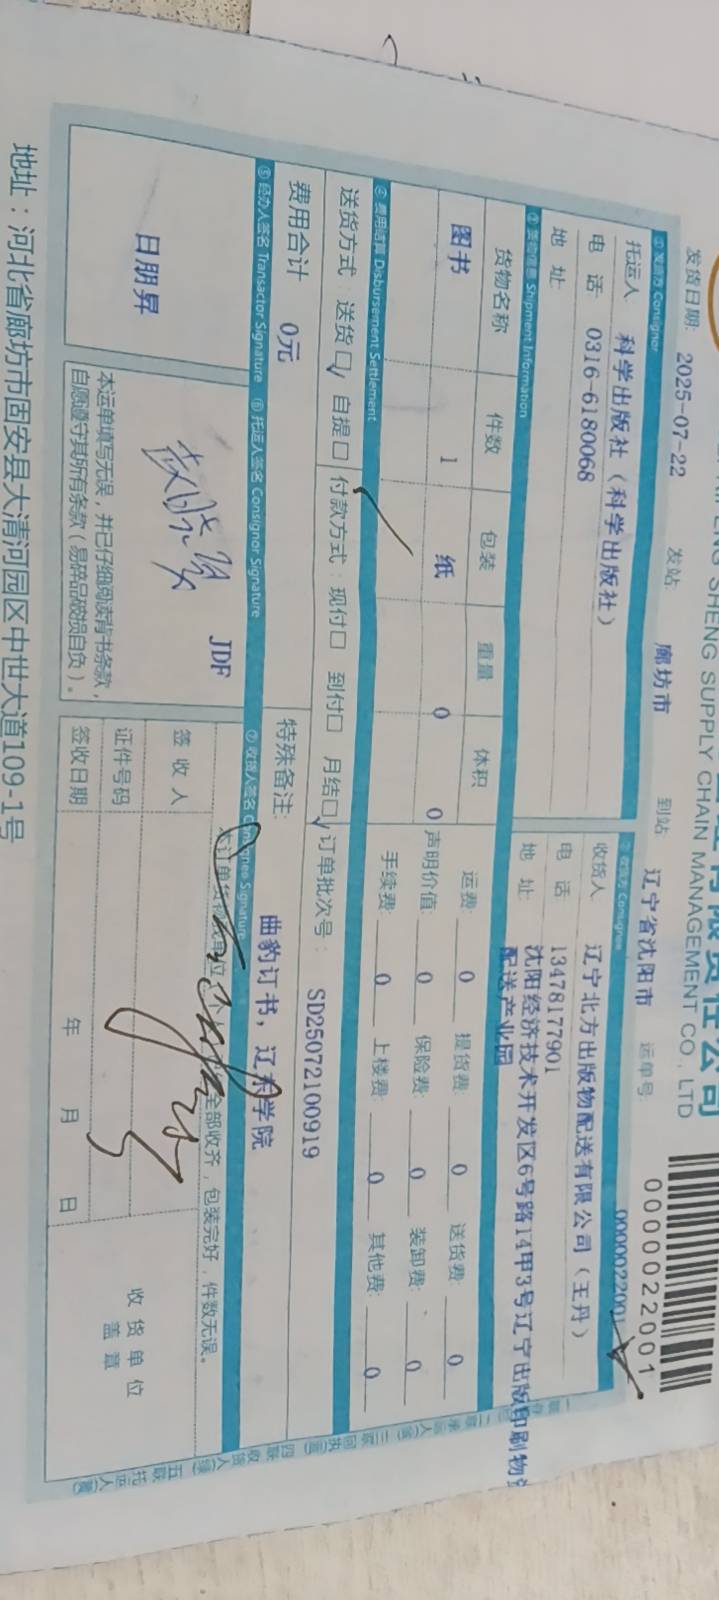 限责任公司
SHENG SUPPLY CHAIN MANAGEMENT CO., LTD
0000022001
发货日期: 2025-07-22 发站: 廊坊市 到站 辽宁省沈阳市 运单号: 0000022001
① 发货方 Consignor
托运人 科学出版社（科学出版社）
电 话 0316-6180068
地 址:
② 收货方 Consignee
收货人 辽宁北方出版物配送有限公司（王丹）
电 话 13478177901
地 址: 沈阳经济技术开发区6号路14甲3号辽宁出版印刷物
配送产业园
③ 货物信息 Shipment Information
货物名称 件数 包装 重量 体积
图书 1 纸 0 0
运费: 0 提货费: 0 送货费: 0
声明价值: 0 保险费: 0 装卸费: 0
手续费: 0 上楼费: 0 其他费: 0
④ 费用结算 Disbursement Settlement
送货方式: 送货☐√ 自提☐ 付款方式: 现付☐ 到付☐ 月结☐√ 订单批次号: SD25072100919
费用合计 0元
特殊备注: 曲豹订书, 辽东学院
⑤ 经办人签名 Transactor Signature ⑥ 托运人签名 Consignor Signature ⑦ 收货人签名 Consignee Signature
日朋昇
JDF
本运单填写无误，并已仔细阅读背书条款，
自愿遵守其所有条款（易碎品破损自负）。
全部收齐，包装完好，件数无误。
签 收 人
证件号码
签收日期 年 月 日
收 货 单 位
盖 章
地址：河北省廊坊市固安县大清河园区中世大道109-1号